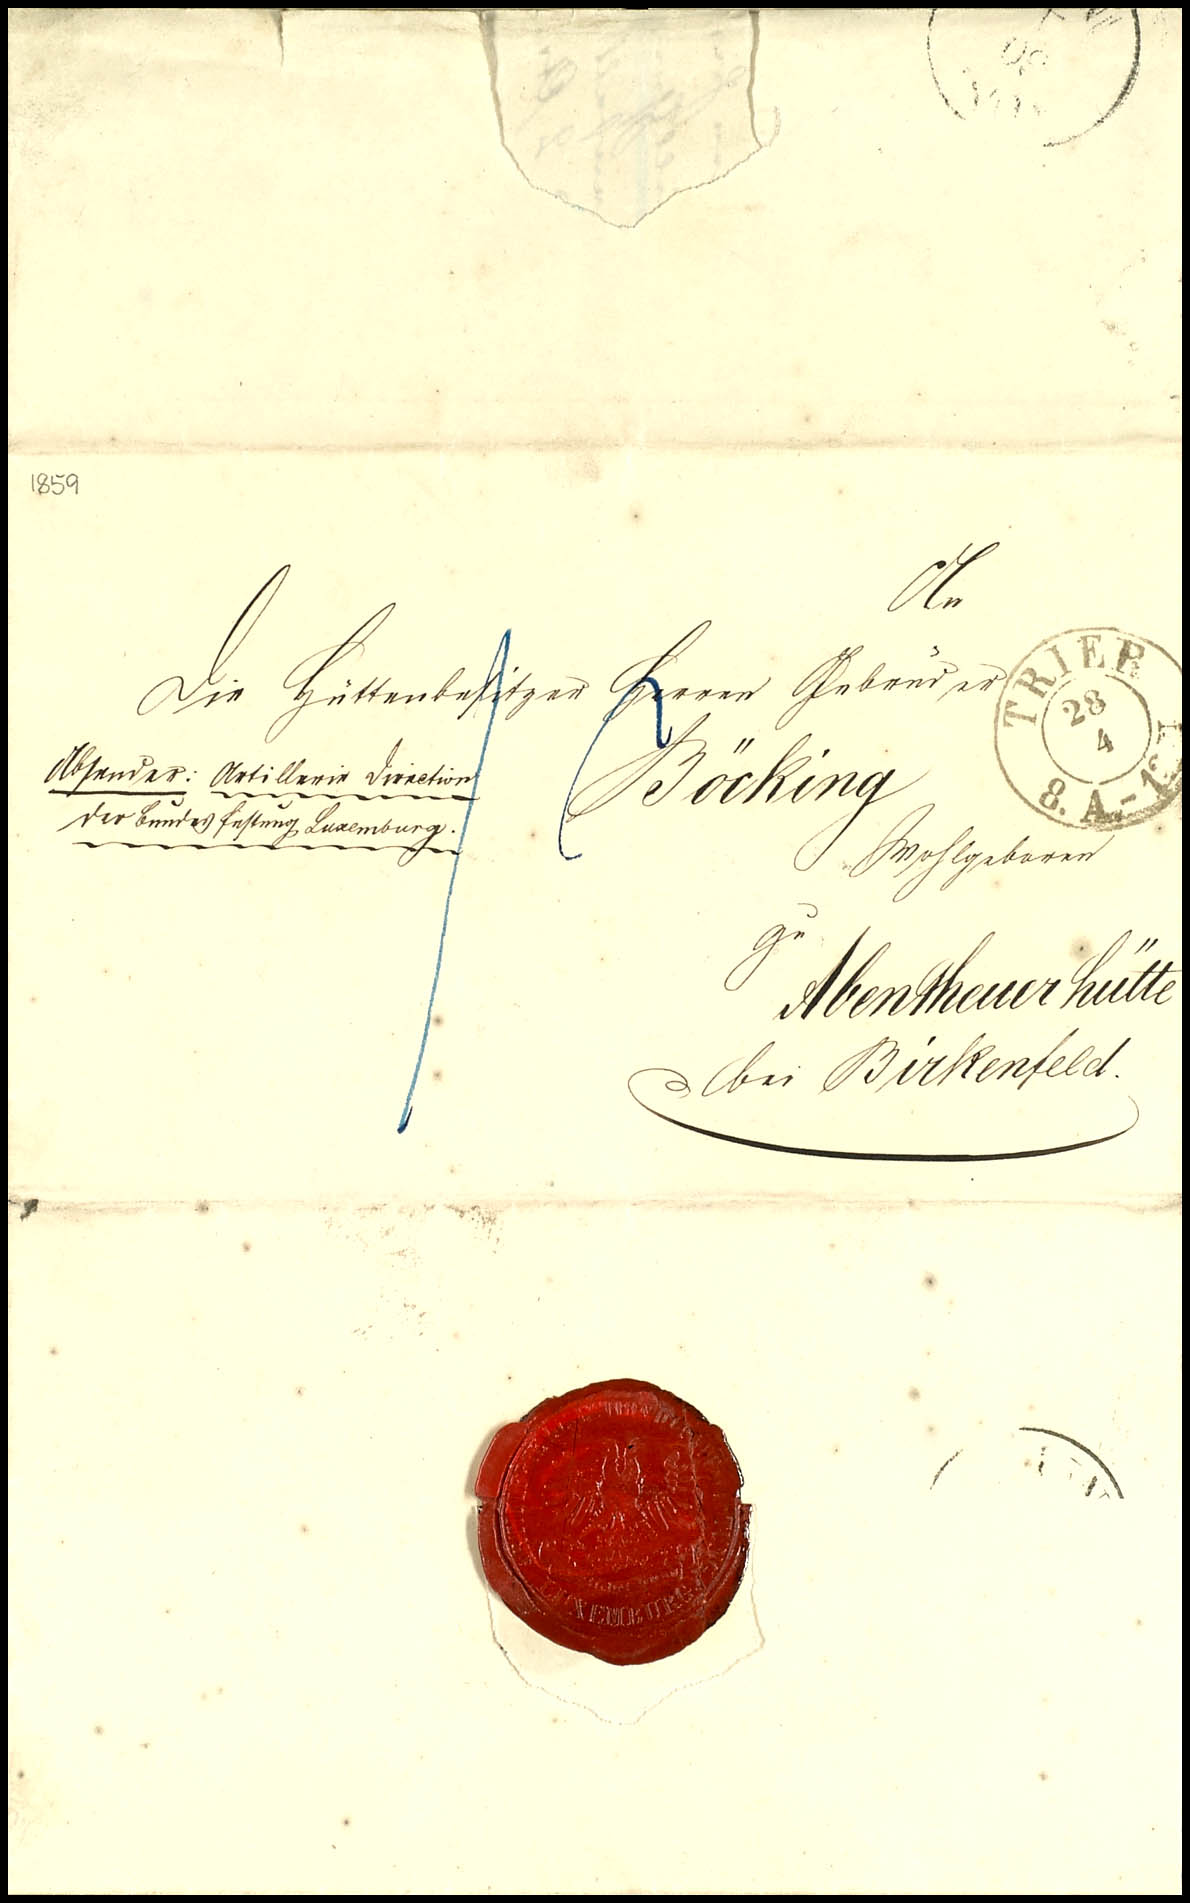 1859
An
Die Hüttenbesitzer Herren Gebrüder
Böcking
Wohlgeboren
zu
Abentheuerhütte
bei Birkenfeld.
Absender: Artillerie Direction
der Bundesfestung Luxemburg.
TRIER
28
4
8. A.-1
LUXEMBURG